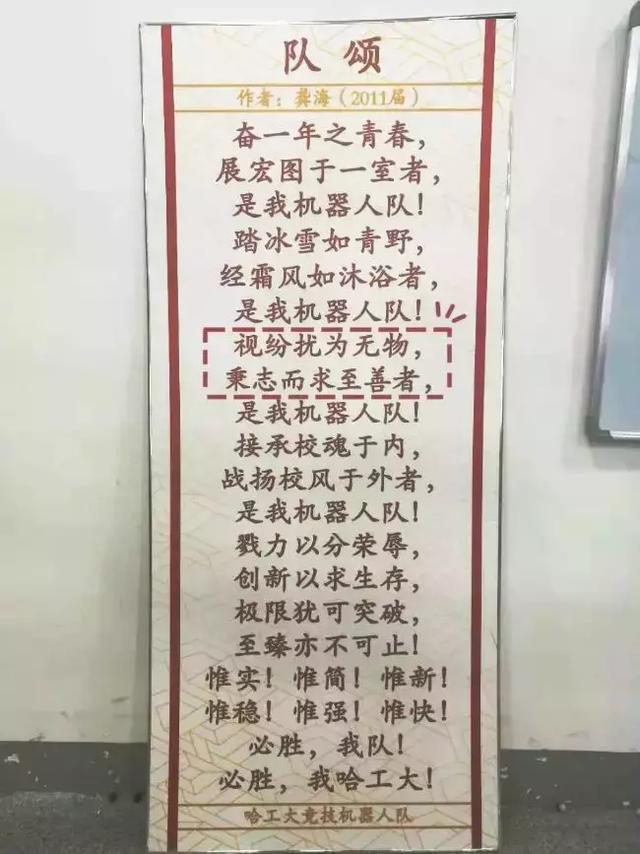 队颂
作者：龚海（2011届）
奋一年之青春，
展宏图于一室者，
是我机器人队！
踏冰雪如青野，
经霜风如沐浴者，
是我机器人队！
视纷扰为无物，
秉志而求至善者，
是我机器人队！
接承校魂于内，
战扬校风于外者，
是我机器人队！
戮力以分荣辱，
创新以求生存，
极限犹可突破，
至臻亦不可止！
惟实！惟简！惟新！
惟稳！惟强！惟快！
必胜，我队！
必胜，我哈工大！
哈工大竞技机器人队